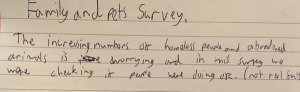 Family and pets Survey.
The increasing numbers of homeless people and abandoned
animals is worrying and in this survey we
were checking if people were doing ore. (not real